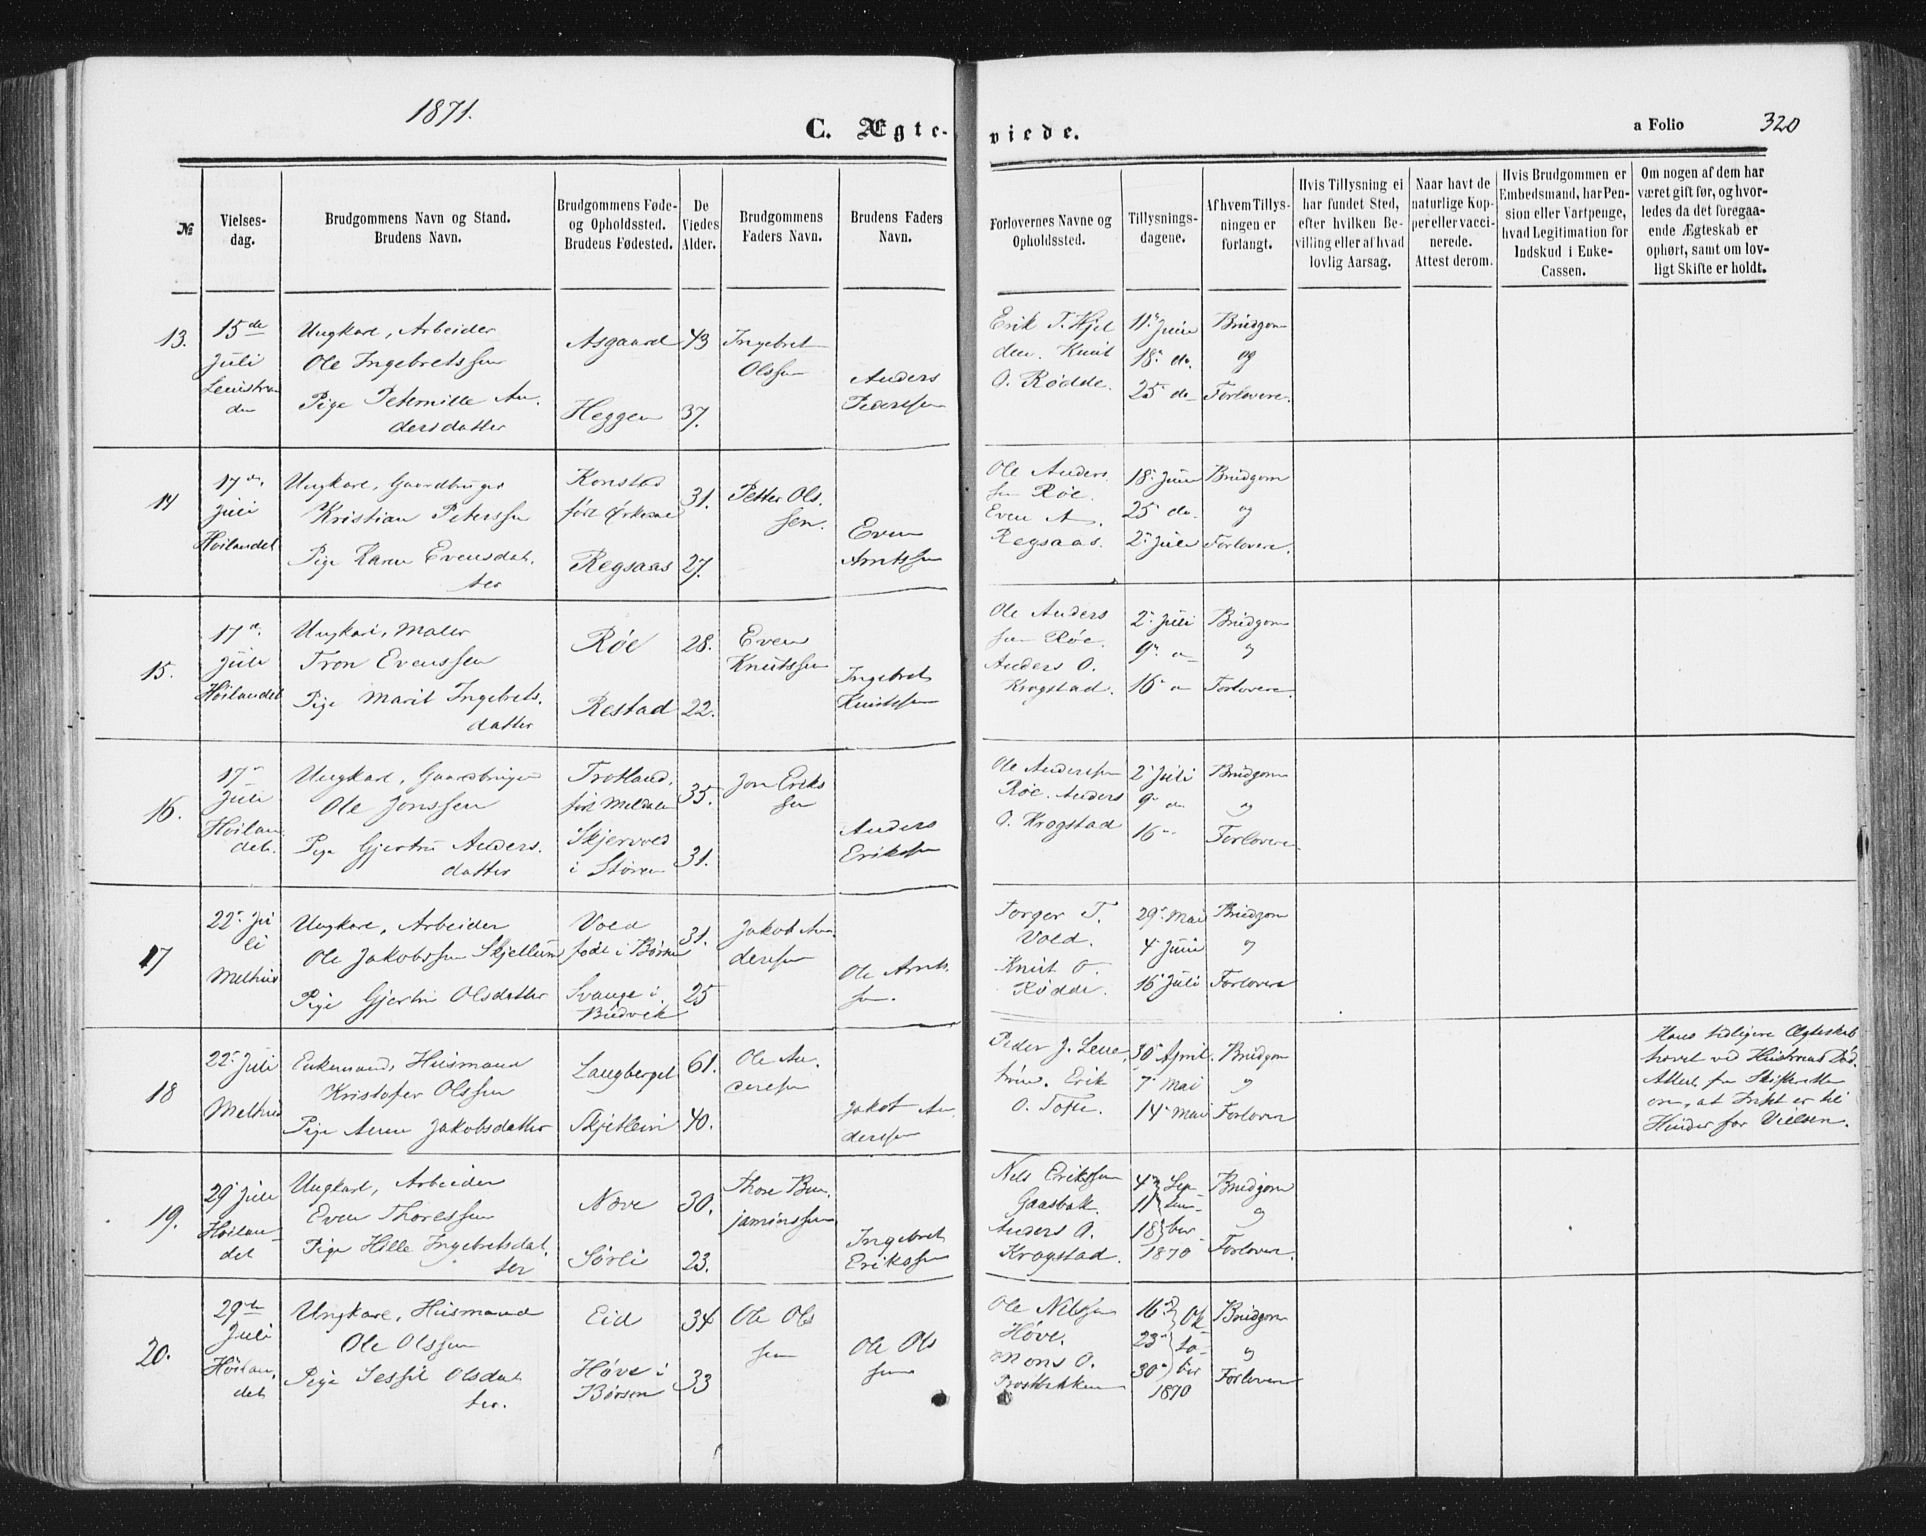 1871.
C. Ægteviede.
a Folio 320
№
Vielsesdag.
Brudgommens Navn og Stand.
Brudens Navn.
Brudgommens Føde-
og Opholdssted.
Brudens Fødested.
De
Viedes
Alder.
Brudgommens
Faders Navn.
Brudens Faders
Navn.
Forlovernes Navne og
Opholdssted.
Tillysnings-
dagene.
Af hvem Tillys-
ningen er
forlangt.
Hvis Tillysning ei
har fundet Sted,
efter hvilken Be-
villing eller af hvad
lovlig Aarsag.
Naar havt de
naturlige Kop-
per eller vacci-
nerede.
Attest derom.
Hvis Brudgommen er
Embedsmand, har Pen-
sion eller Vartpenge,
hvad Legitimation for
Indskud i Enke-
Cassen.
Om nogen af dem har
været gift før, og hvor-
ledes da det foregaa-
ende Ægteskab er
ophørt, samt om lov-
ligt Skifte er holdt.
13.
15de
Juli
Ungkarl, Arbeider
Ole Ingebretssen
Pige Petternille An-
dersdatter
Asgaard
Heggen
43
37.
Ingebret
Olssen
Anders
Pederssen
Erik T. Kjel
den. Knut
O. Rødde.
11te Juni
18de do.
25de do
Brudgom
og
Forlovere.
14
17de
Juli
Høilandet
Ungkarl, Gaardbruger
Kristian Peterssen
Pige Karen Evensdat-
ter
Konstad
Regsaas
31.
27.
Petter Ols
sen.
Even
Arntssen
Ole Anders
sen Røe.
Even A.
Regsaas.
18de Juni
25 do.
2den Juli
Brudgom
og
Forlovere.
15.
17de
Juli
Høilandet
Ungkarl, Maler
Tron Evenssen
Pige Marit Ingebrets-
datter
Røe
Restad
28.
22.
Even
Knutssen
Ingebret
Knutssen
Ole Anders
sen Røe.
Anders O.
Krogstad.
2den Juli
9de
16de
Brudgom
og
Forlovere.
16.
17de
Juli
Høilan-
det.
Ungkarl, Gaardbruger
Ole Jonssen
Pige Gjertru Anders-
datter
Trotland,
født Meldalen
Skjervold
i Støren
35.
31.
Jon Eriks
sen
Anders
Erikssen
Ole Anderssen
Røe. Anders
O. Krogstad
2den Juli
9de
16de
Brudgom
og
Forlovere
17
22de Ju
li
Melhus
Ungkarl, Arbeider
Ole Jakobssen Skjellum
Pige Gjertru Olsdatter
Vold
født i Børsen
Svange i
Budvik
31.
25
Jakob An-
derssen
Ole Arnts-
sen.
Torger T.
Vold.
Knut O.
Rødde.
29de Mai
4de Juni
16de Juli
Brudgom
og
Forlovere
18
22de Juli
Melhus
Enkemand, Husmand
Kristofer Olssen
Pige Anne Jakobsdatter
Langberget
Skjetlein
61.
40.
Ole An-
derssen
Jakob An-
derssen
Peder J.
Erik
O. Tofte.
30de April.
7de Mai
14de Mai
Brudgom
og
Forlovere
Hans tidligere Ægteskab
hævet ved Hustruens Død.
Attest fra Skifteretten
om, at Intet er til
Hinder for Vielsen.
19.
29de Juli
Høilan-
det
Ungkarl, Arbeider
Even Thoressen
Pige Hille Ingebretsdat-
ter
Nove
Sørli
30.
23.
Thore Ben-
jaminssen
Ingebret
Erikssen
Nils Erikssen
Gaasbak.
Anders O.
Krogstad.
4de Sep
11 tem
18 ber
1870
Brudgom
og
Forlovere.
20.
29de
Juli
Høilan-
det
Ungkarl, Husmand
Ole Olssen
Pige Sessil Olsdat
ter.
Eid
Høve i
Børsen
34
33
Ole Ols
sen
Ole Ols
sen
Ole Nilssen
Høve.
Mons O.
16de Ok
23de to-
30de ber
1870
Brudgom
og
Forlovere